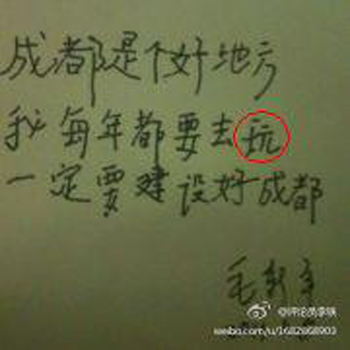 成都是个好地方
我每年都要去玩
一定要建设好成都
毛新宇
weibo.com/u/1682868903